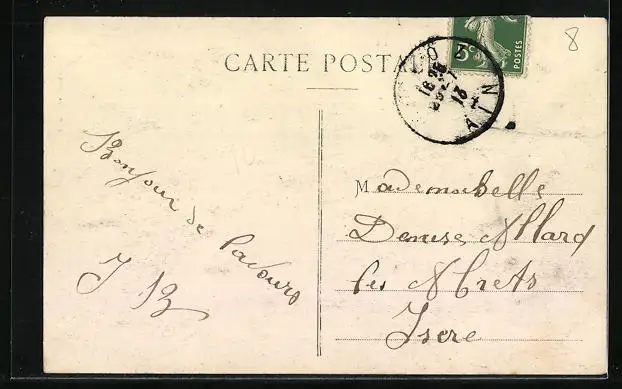 8
CARTE POSTALE
5c POSTES
18 30
13
AIN
Bonjour de Lavours
J B
Mademoiselle
Denise Allard
Les Abrets
Isère